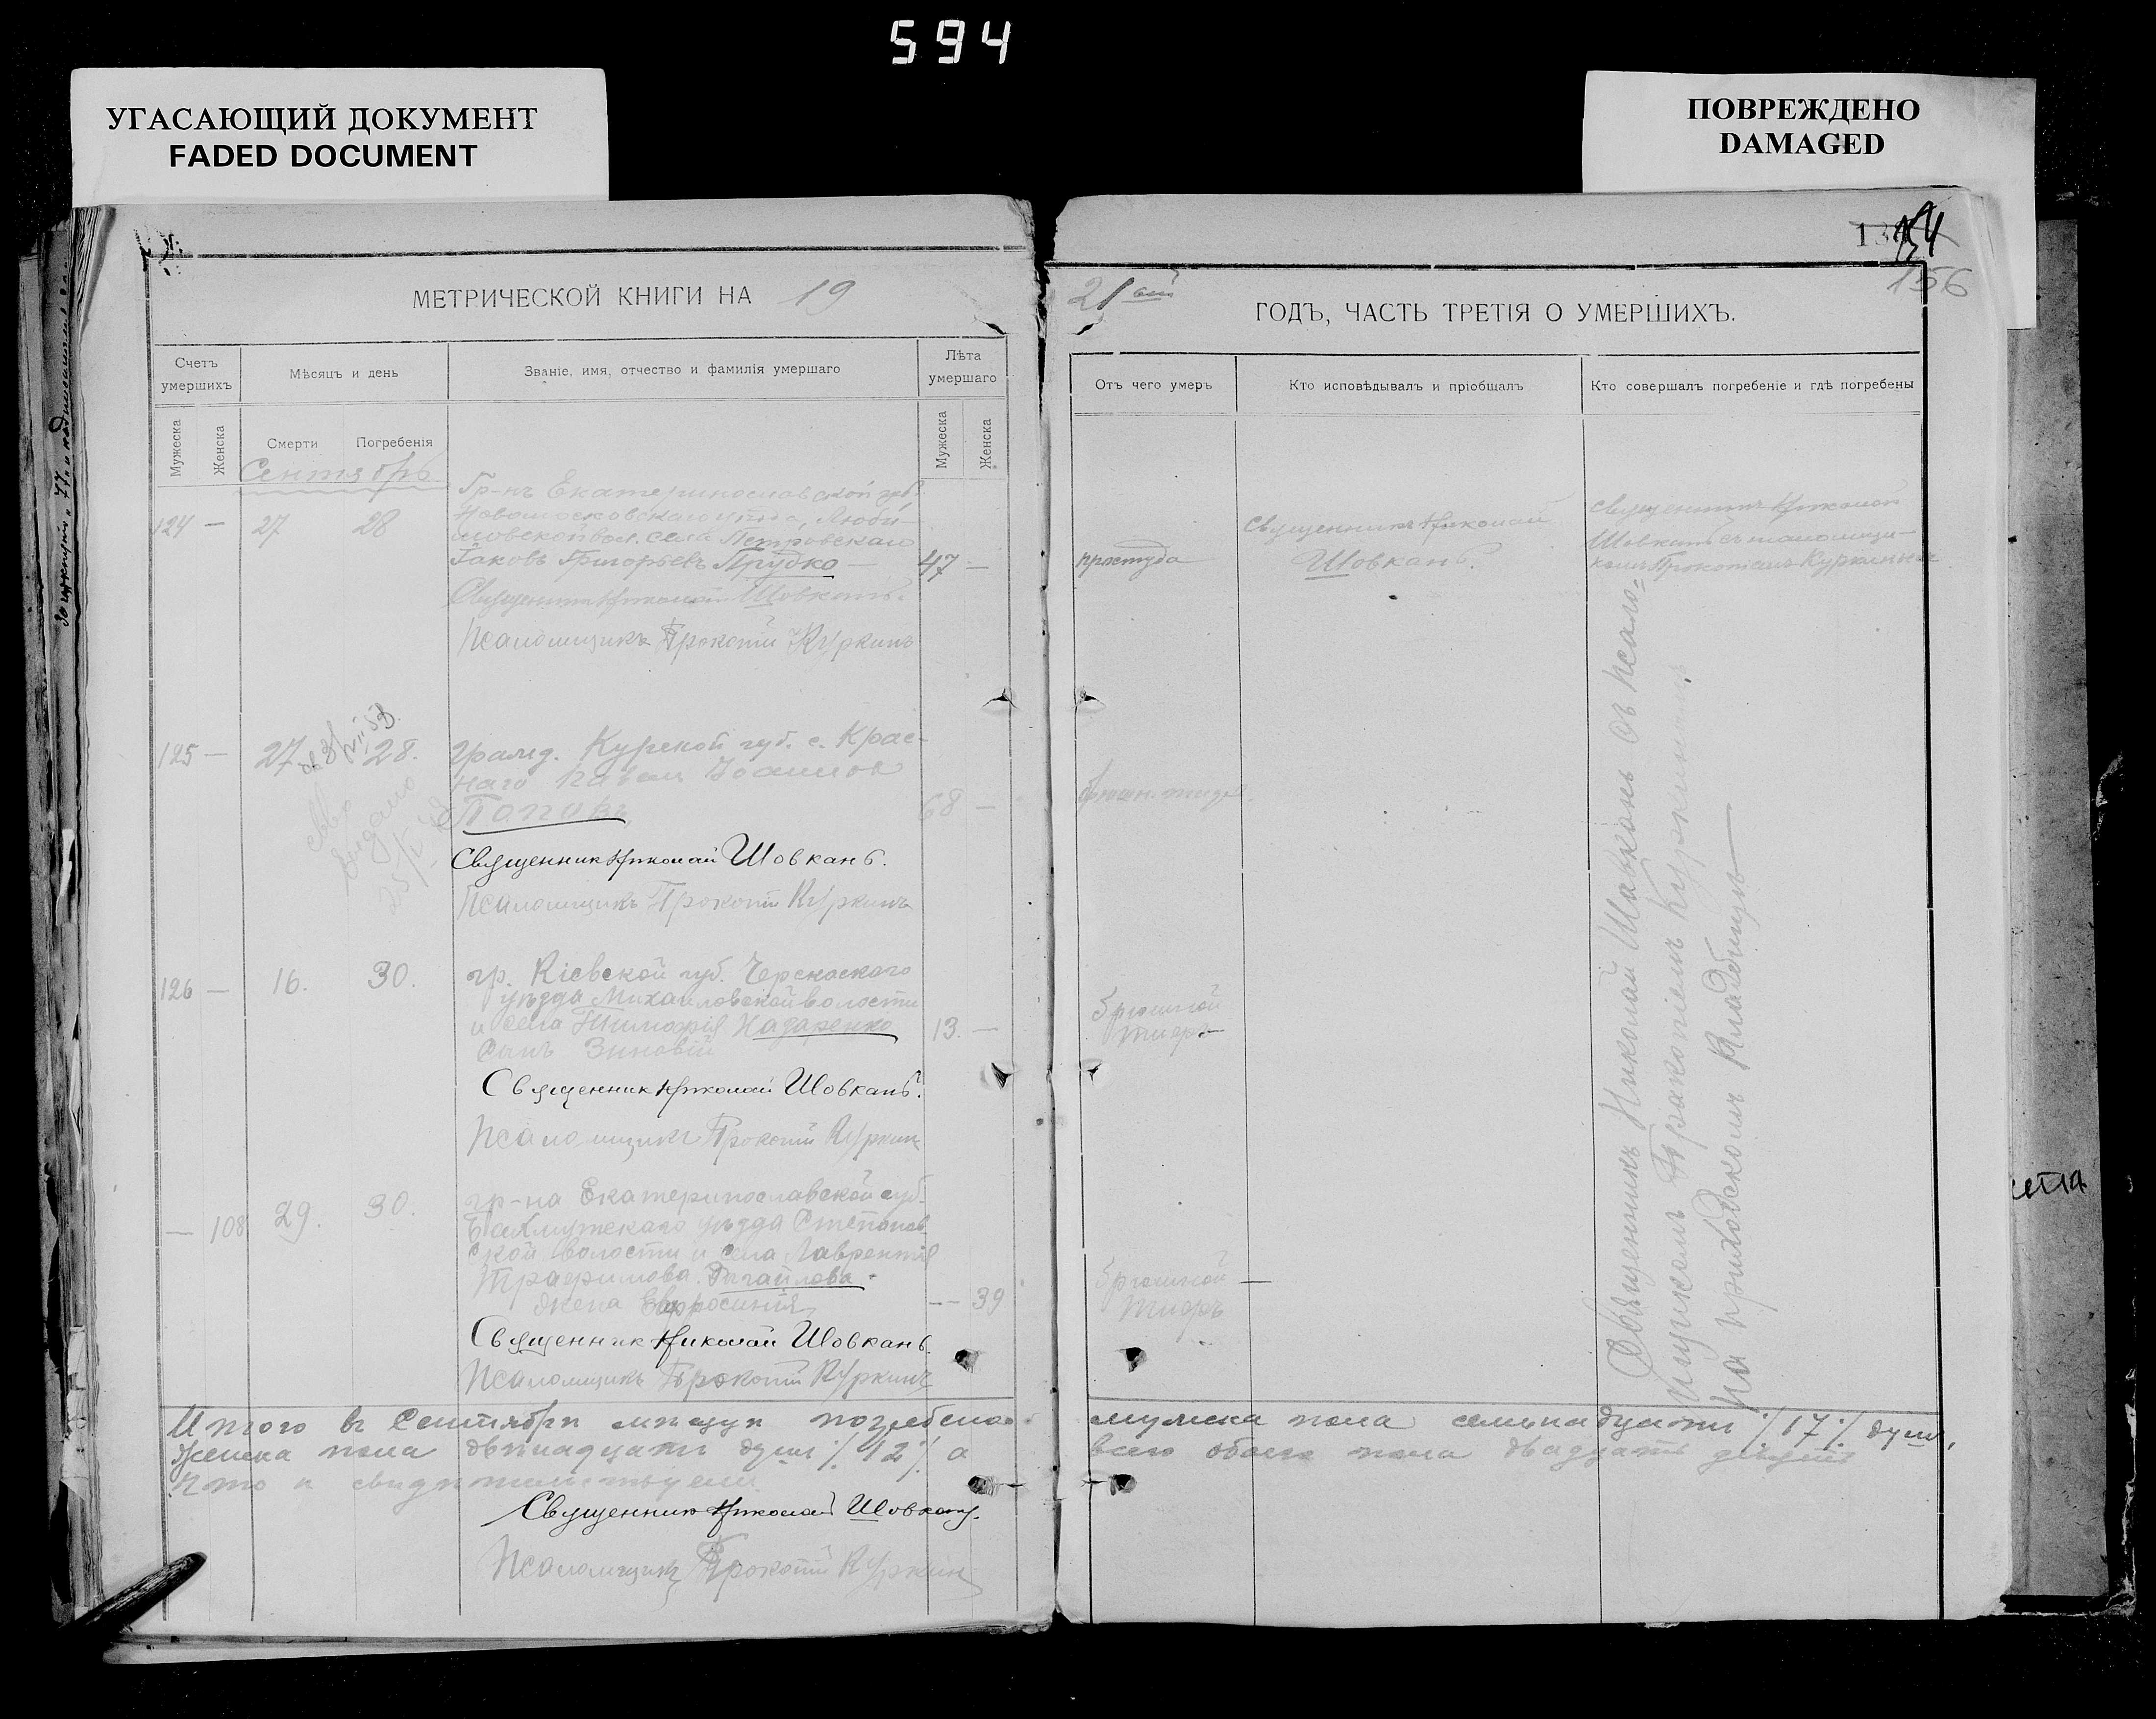 594
УГАСАЮЩИЙ ДОКУМЕНТ
FADED DOCUMENT
ПОВРЕЖДЕНО
DAMAGED
156
МЕТРИЧЕСКОЙ КНИГИ НА 19
21 ый ГОДЪ, ЧАСТЬ ТРЕТІЯ О УМЕРШИХЪ.
Счетъ умершихъ
Мѣсяцъ и день
Званіе, имя, отчество и фамилія умершаго
Лѣта умершаго
Отъ чего умеръ
Кто исповѣдывалъ и пріобщалъ
Кто совершалъ погребеніе и гдѣ погребены
Мужеска
Женска
Смерти
Погребенія
Мужеска
Женска
Сентябрь
124 — 27 28
Гр-нъ Екатеринославской губ.
Новомосковскаго уѣзда, Люби-
мовской вол. села Петровскаго
Іаковъ Григорьевъ Прудко — 47 —
Священникъ Николай Шовкань.
Псаломщикъ Прокопій Куркинъ
простуда
Священникъ Николай
Шовкань.
Священникъ Николай
Шовкань съ псаломщи-
комъ Прокопіемъ Куркинымъ
125 — 27 28.
Гражд. Курской губ. с. Крас-
наго Павелъ Іоанновъ
Поповъ 68 —
Священник Николай Шовкань.
Псаломщикъ Прокопій Куркинъ
брюшн. тифъ
выдано
126 — 16. 30.
гр. Кіевской губ. Черкаскаго
уѣзда Михайловской волости
и села Тимофія Назаренко 13. —
сынъ Зиновій
Священник Николай Шовкань.
Псаломщикъ Прокопій Куркинъ
Брюшной
тифъ
— 108 29. 30.
гр-на Екатеринославской губ.
Бахмутскаго уѣзда Степанов-
ской волости и села Лаврентія
Трафимова
жена Евфросинія — 39
Священник Николай Шовкань.
Псаломщикъ Прокопій Куркинъ
Брюшной
тифъ
Священникъ Николай Шовкань съ псало=
мщикомъ Пракопіемъ Куркинымъ
на приходскомъ кладбищѣ
Итого въ Сентябрѣ мѣсяцѣ погребено мужеска пола семьнадцать /17/ душъ,
Женска пола двѣнадцать душъ /12/ а всего обоего пола двадцать девять
Что и свидѣтельствуемъ
Священник Николай Шовкань.
Псаломщикъ Прокопій Куркинъ